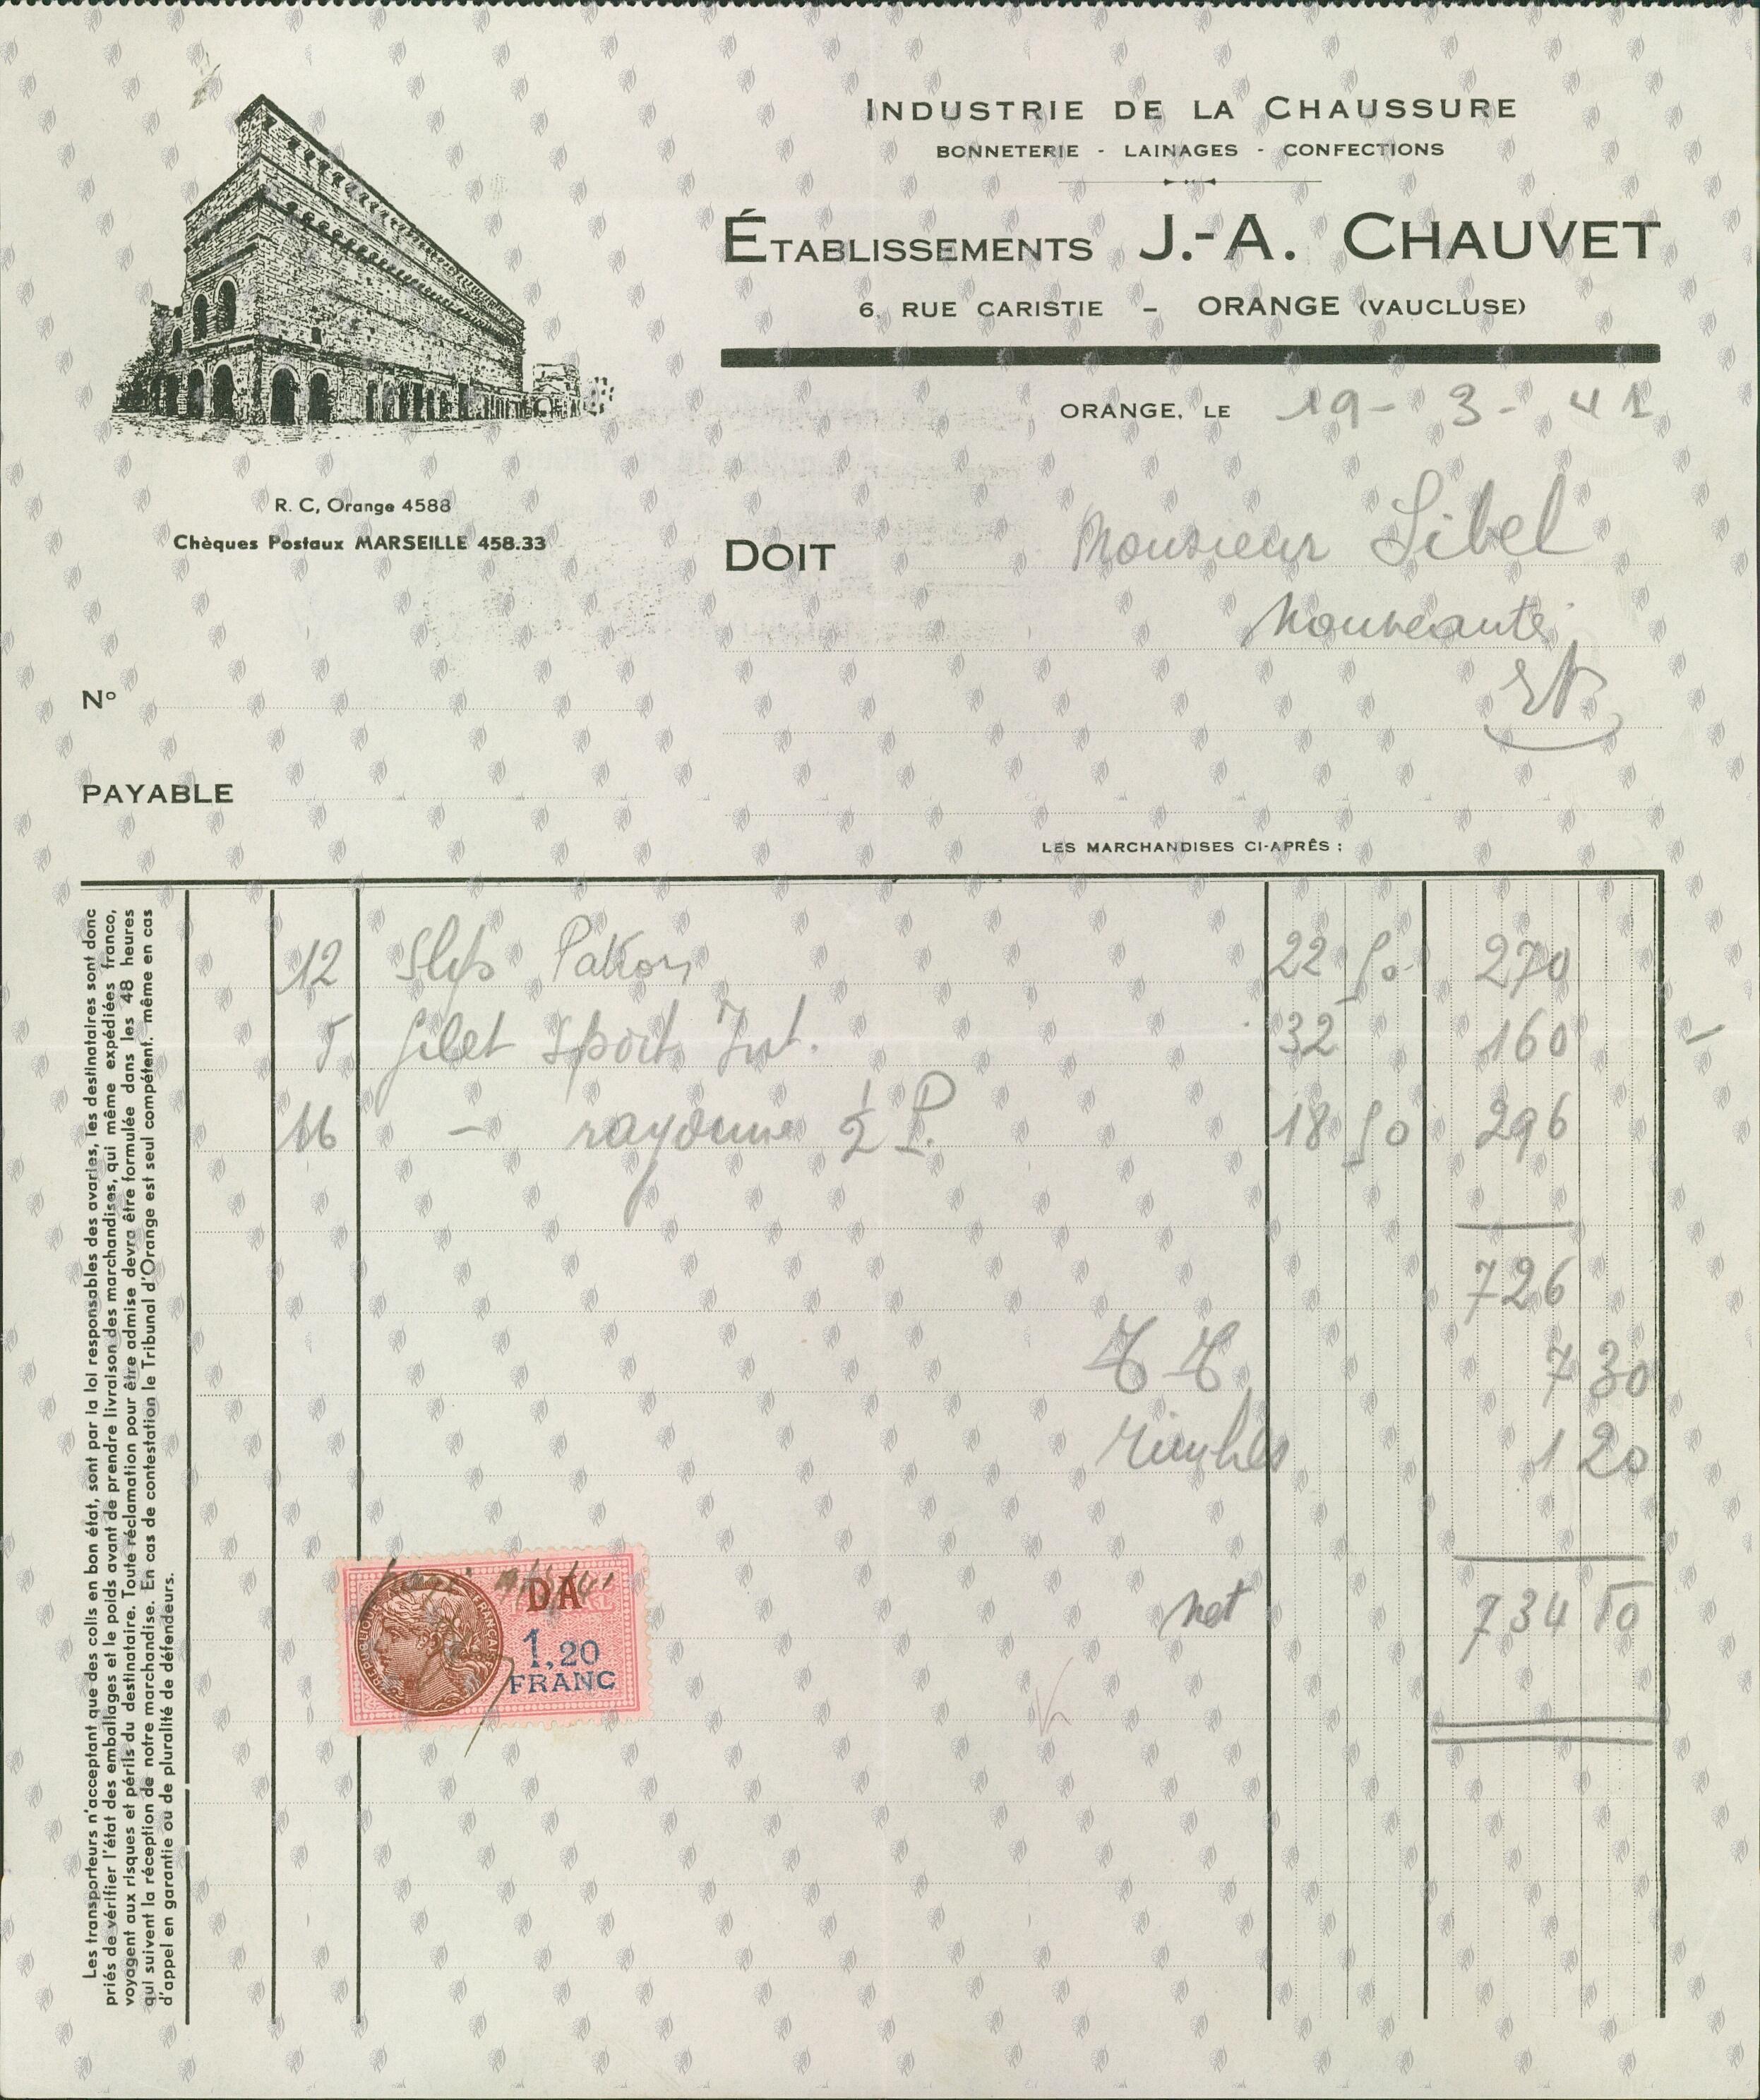 INDUSTRIE DE LA CHAUSSURE
BONNETERIE - LAINAGES - CONFECTIONS
ÉTABLISSEMENTS J.-A. CHAUVET
6, RUE CARISTIE - ORANGE (VAUCLUSE)
ORANGE, LE 19 - 3 - 41
R. C, Orange 4588
Chèques Postaux MARSEILLE 458.33
DOIT Monsieur Sibel
Nouveauté
No
PAYABLE
LES MARCHANDISES CI-APRÊS :
12 Slips 22 50 270
5 Gilet Sport 32 160
16 - rayonne ½ P. 18 50 296
726
7 30
timbres 1 20
net 734 50
DA
1,20
FRANC
Les transporteurs n'acceptant que des colis en bon état, sont par la loi responsables des avaries, les destinataires sont donc
priés de vérifier l'état des emballages et le poids avant de prendre livraison des marchandises, qui même expédiées franco,
voyagent aux risques et périls du destinataire. Toute réclamation pour être admise devra être formulée dans les 48 heures
qui suivent la réception de notre marchandise. En cas de contestation le Tribunal d'Orange est seul compétent. même en cas
d'appel en garantie ou de pluralité de défendeurs.